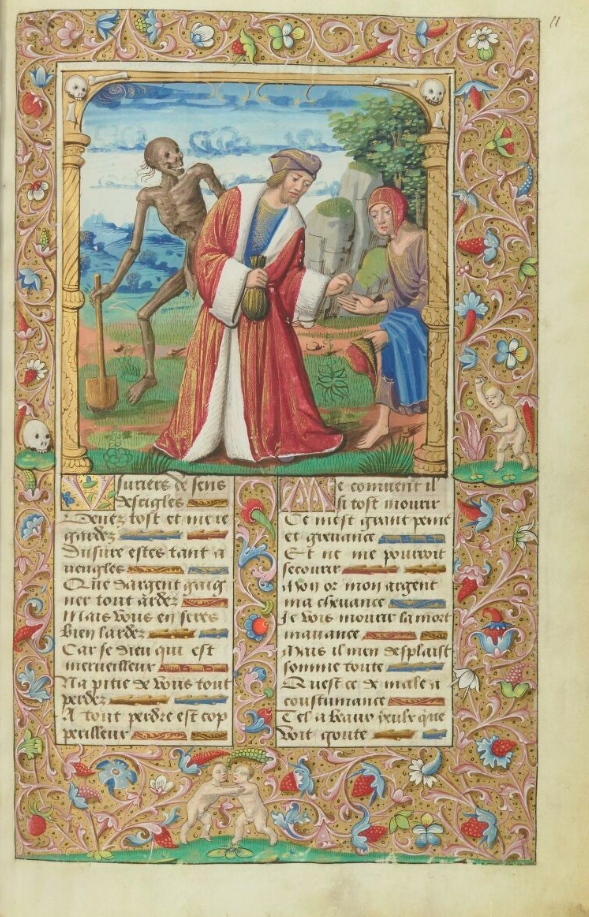 11
Vsuriers de sens
desrigles
Venez tost et me re
gardez
Dusure estes tant a
ueugles
Que dargent gaig
ner tout ardez
Mais vous en seres
bien lardez
Car se dieu qui est
merueilleux
Na pitie de vous tout
perdez
A tout perdre est cop
perilleux
Me conuient il
si tost mourir
Ce mest grant peine
et greuance
Et ne me pourroit
secourir
Mon or mon argent
ma cheuance
Je vois mourir la mort
mauance
Mais il men desplaist
somme toute
Quest ce de male a
coustumance
Tel a beaux yeulx que
voit goute